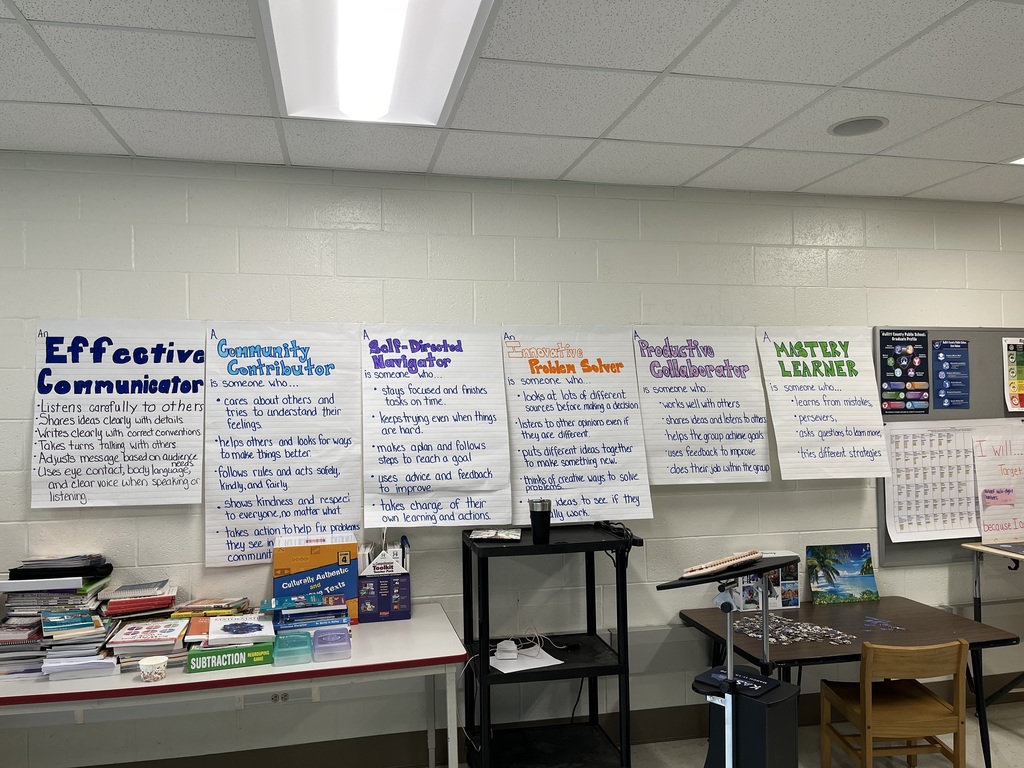 An
Effective
Communicator
• Listens carefully to others
• Shares ideas clearly with details
• Writes clearly with correct conventions
• Takes turns talking with others
• Adjusts message based on audience
needs
• Uses eye contact, body language,
and clear voice when speaking or
listening.
A
Community
Contributor
is someone who...
• cares about others and
tries to understand their
feelings.
• helps others and looks for ways
to make things better
• follows rules and acts safely,
kindly, and fairly.
• shows kindness and respect
to everyone, no matter what
• takes action to help fix problems
they see in
communit
A
Self-Directed
Navigator
is someone who...
• stays focused and finishes
tasks on time.
• Keeps trying even when things
are hard.
• makes a plan and follows
steps to reach a goal
• uses advice and feedback
to improve
• takes charge of their
own learning and actions.
An
Innovative
Problem Solver
is someone who...
• looks at lots of different
sources before making a decision
• listens to other opinions even if
they are different.
• puts different ideas together
to make something new.
• thinks of creative ways to solve
problems
ideas to see if they
work.
A
Productive
Collaborator
is someone who...
• works well with others
• shares ideas and listens to others
• helps the group achieve goals
• uses feedback to improve
• does their job within the group
A
MASTERY
LEARNER
is someone who...
• learns from mistakes,
• perseveres,
• asks questions to learn more
• tries different strategies
Bullitt County Public Schools
Graduate Profile
I will...
because I
Culturally Authentic
and
Texts
4
Toolkit
SUBTRACTION
REGROUPING